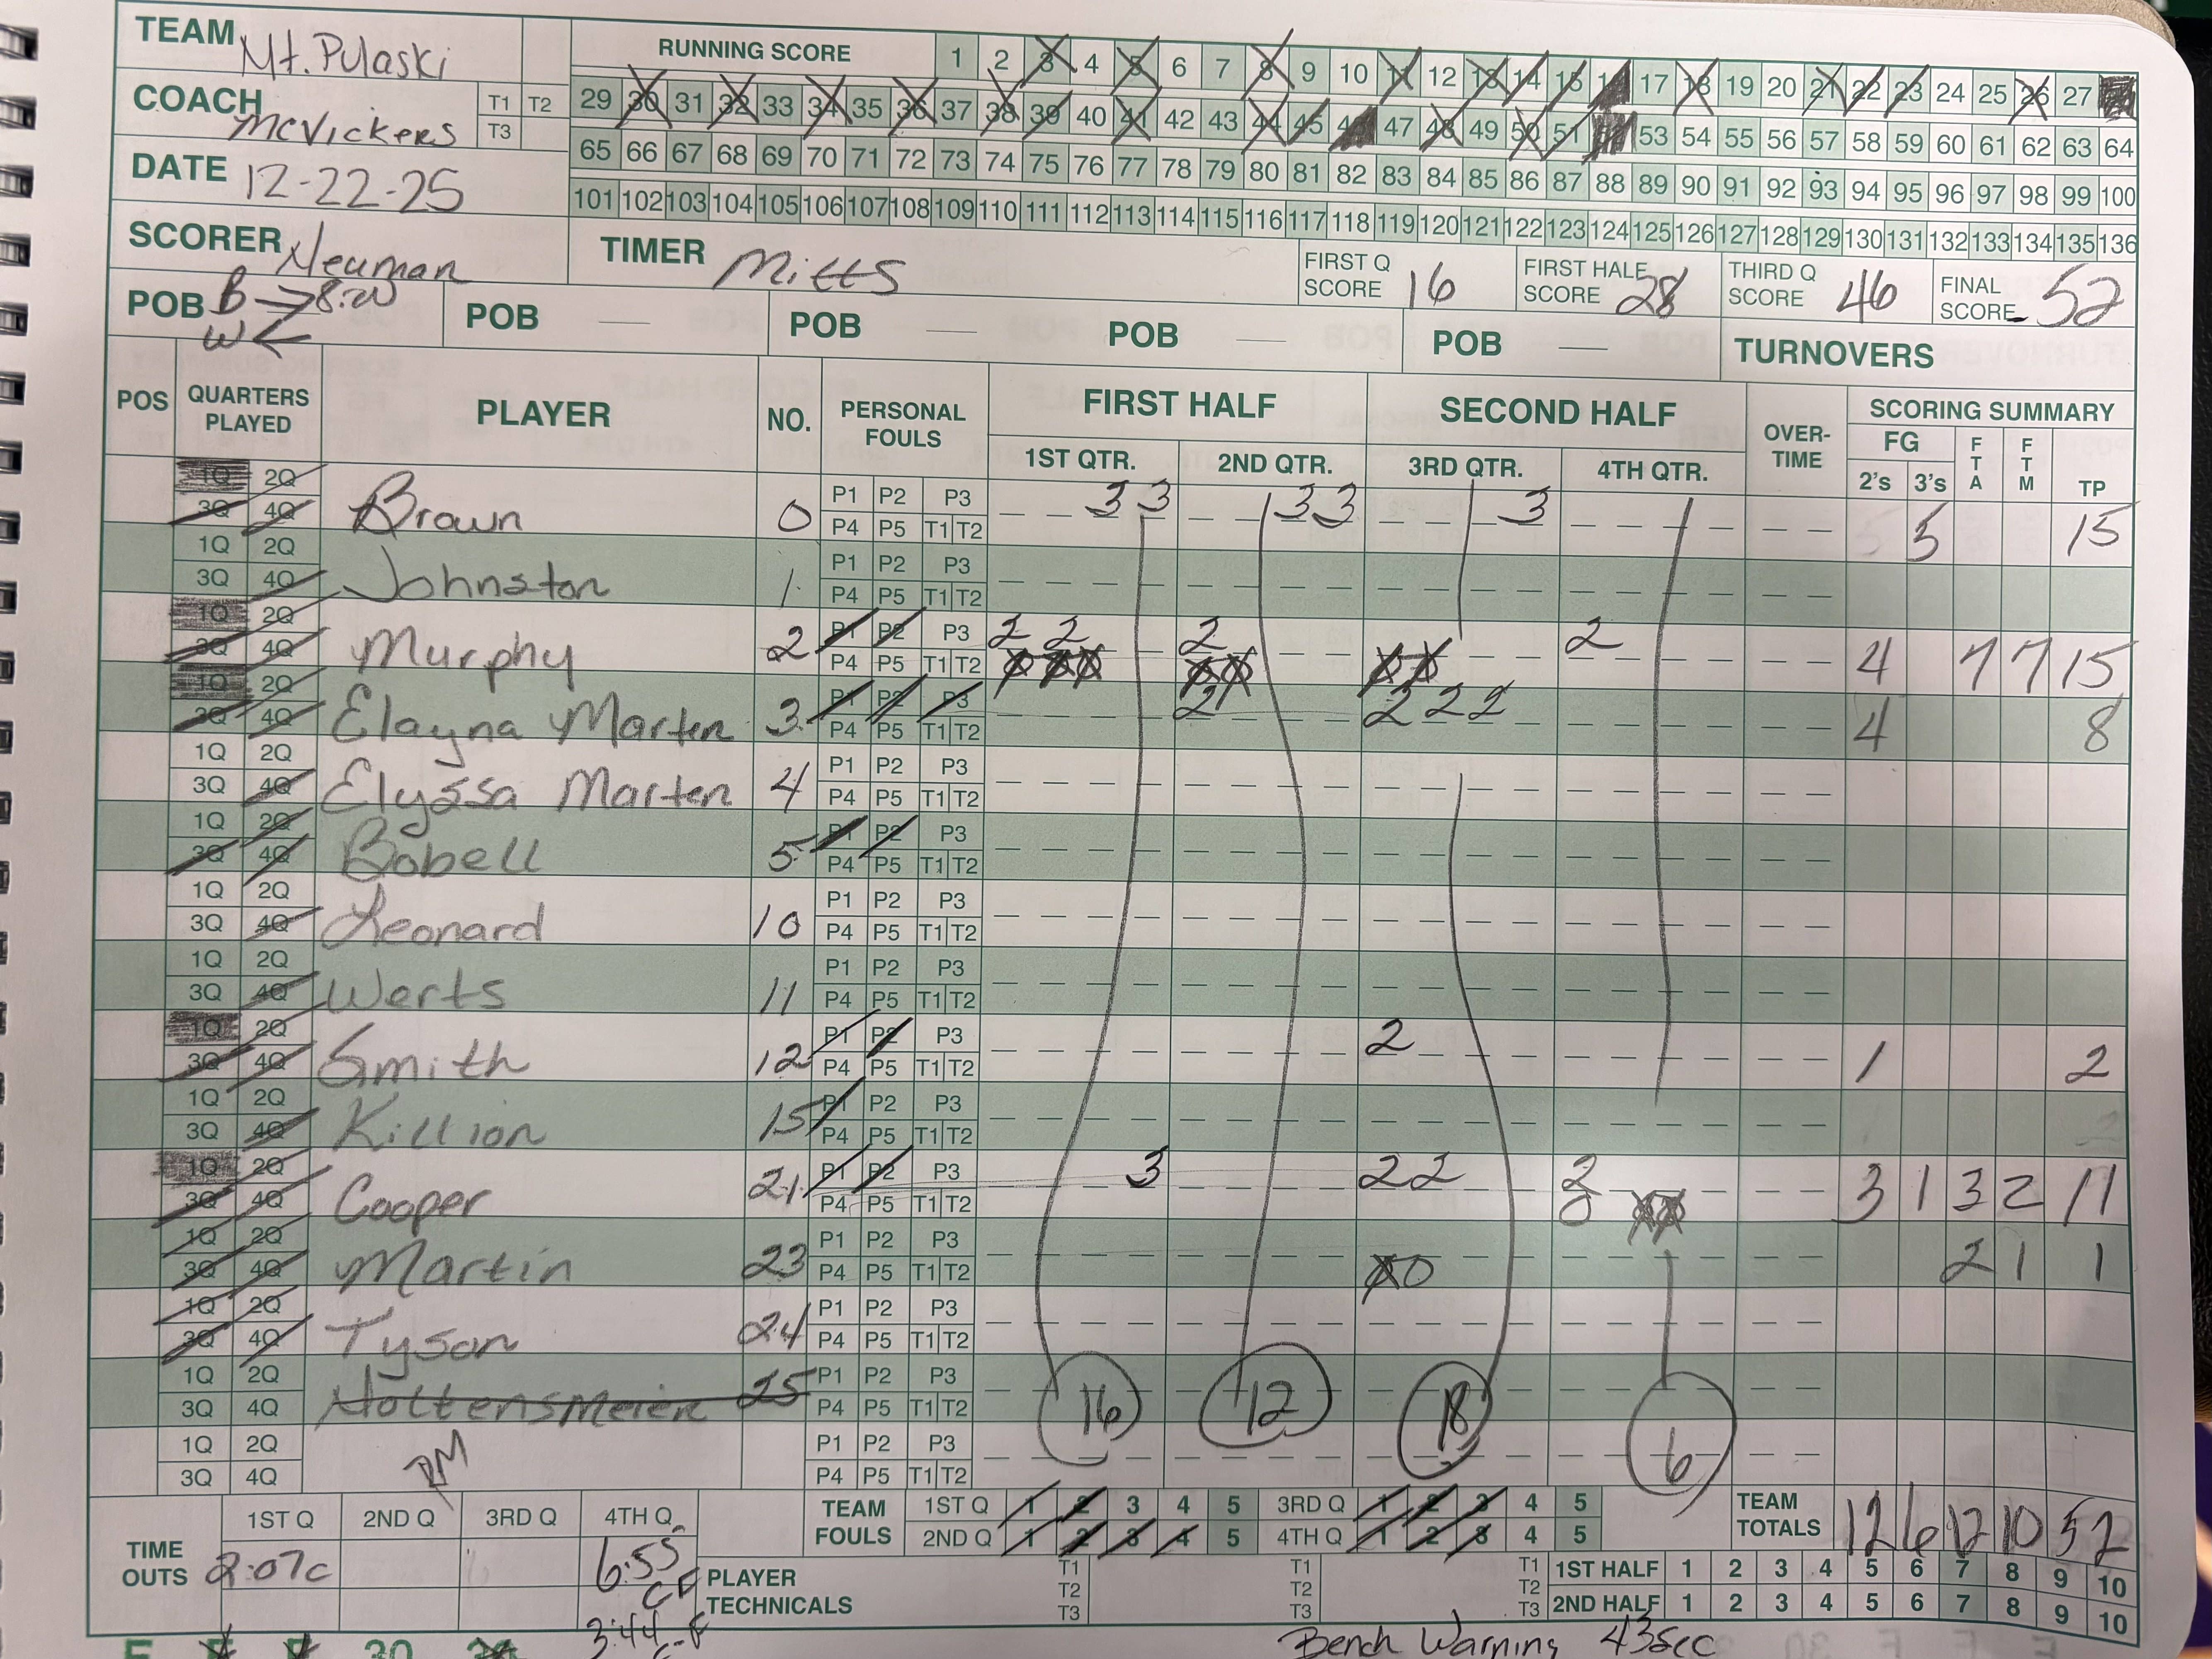 TEAM Mt. Pulaski
COACH McVickers T1 T2 T3
DATE 12-22-25
SCORER Neuman
RUNNING SCORE 1 2 3 4 5 6 7 8 9 10 11 12 13 14 15 16 17 18 19 20 21 22 23 24 25 26 27
29 30 31 32 33 34 35 36 37 38 39 40 41 42 43 44 45 46 47 48 49 50 51 52 53 54 55 56 57 58 59 60 61 62 63 64
65 66 67 68 69 70 71 72 73 74 75 76 77 78 79 80 81 82 83 84 85 86 87 88 89 90 91 92 93 94 95 96 97 98 99 100
101 102 103 104 105 106 107 108 109 110 111 112 113 114 115 116 117 118 119 120 121 122 123 124 125 126 127 128 129 130 131 132 133 134 135 136
TIMER Mitts
FIRST Q SCORE 16
FIRST HALF SCORE 28
THIRD Q SCORE 46
FINAL SCORE 52
POB B 8:00 W POB POB POB POB TURNOVERS
POS QUARTERS PLAYED PLAYER NO. PERSONAL FOULS FIRST HALF SECOND HALF OVER-TIME SCORING SUMMARY
1ST QTR. 2ND QTR. 3RD QTR. 4TH QTR. FG 2's 3's FTA FTM TP
1Q 2Q 3Q 4Q Brown 0 P1 P2 P3 P4 P5 T1 T2 3 3 3 3 3 5 15
1Q 2Q 3Q 4Q Johnston 1 P1 P2 P3 P4 P5 T1 T2
1Q 2Q 3Q 4Q Murphy 2 P1 P2 P3 P4 P5 T1 T2 2 2 2 2 4 7 7 15
1Q 2Q 3Q 4Q Elayna Marten 3 P1 P2 P3 P4 P5 T1 T2 2 2 2 2 4 8
1Q 2Q 3Q 4Q Elyssa Marten 4 P1 P2 P3 P4 P5 T1 T2
1Q 2Q 3Q 4Q Bobell 5 P1 P2 P3 P4 P5 T1 T2
1Q 2Q 3Q 4Q Leonard 10 P1 P2 P3 P4 P5 T1 T2
1Q 2Q 3Q 4Q Werts 11 P1 P2 P3 P4 P5 T1 T2
1Q 2Q 3Q 4Q Smith 12 P1 P2 P3 P4 P5 T1 T2 2 1 2
1Q 2Q 3Q 4Q Killion 15 P1 P2 P3 P4 P5 T1 T2
1Q 2Q 3Q 4Q Cooper 21 P1 P2 P3 P4 P5 T1 T2 3 2 2 2 0 3 1 3 2 11
1Q 2Q 3Q 4Q Martin 23 P1 P2 P3 P4 P5 T1 T2 0 2 1 1
1Q 2Q 3Q 4Q Tyson 24 P1 P2 P3 P4 P5 T1 T2
1Q 2Q 3Q 4Q Hottensmeier 25 P1 P2 P3 P4 P5 T1 T2 16 12 18 6
1Q 2Q 3Q 4Q P1 P2 P3 P4 P5 T1 T2
TIME OUTS 1ST Q 2ND Q 3RD Q 4TH Q
2:07c 6:55
3:44
TEAM FOULS 1ST Q 1 2 3 4 5 3RD Q 1 2 3 4 5
2ND Q 1 2 3 4 5 4TH Q 1 2 3 4 5
TEAM TOTALS 12 6 12 10 52
PLAYER TECHNICALS T1 T2 T3 T1 T2 T3 T1 T2 T3
1ST HALF 1 2 3 4 5 6 7 8 9 10
2ND HALF 1 2 3 4 5 6 7 8 9 10
Bench Warning 43sec